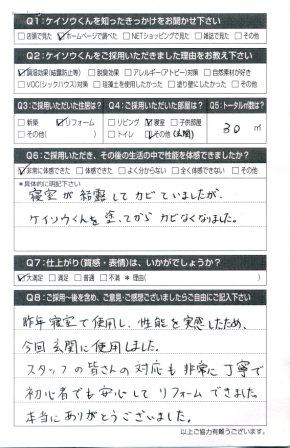 Q1：ケイソウくんを知ったきっかけをお聞かせ下さい
□店頭で見た ☑ホームページで調べた □NETショッピングで見た □雑誌で見た □その他
Q2：ケイソウくんをご採用いただきました理由をお教え下さい
☑調湿効果(結露防止等) □脱臭効果 □アレルギー(アトピー)対策 □自然素材が好き
□VOC(シックハウス)対策 □珪藻土を使用したかった □塗り壁にしたかった □その他
Q3：ご採用いただいた住居は？ Q4：ご採用いただいた部屋は？ Q5：トータル㎡数は？
□新築 ☑リフォーム □リビング ☑寝室 □子供部屋
□その他( ) □トイレ ☑その他(玄関) 30 ㎡
Q6：ご採用いただき、その後の生活の中で性能を体感できましたか？
☑非常に体感できた □体感できた □よく分からない □全く体感できない □その他
*具体的に明記下さい
寝室が結露してカビていましたが、
ケイソウくんを塗ってからカビなくなりました。
Q7：仕上がり(質感・表情)は、いかがでしょうか？
☑大満足 □満足 □普通 □不満 *理由( )
Q8：ご採用～後を含め、ご意見・ご感想ございましたらご自由にご記入下さい
昨年寝室で使用し、性能を実感したため、
今回玄関に使用しました。
スタッフの皆さんの対応も非常に丁寧で
初心者でも安心してリフォームできました。
本当にありがとうございました。
以上ご協力有難うございます。